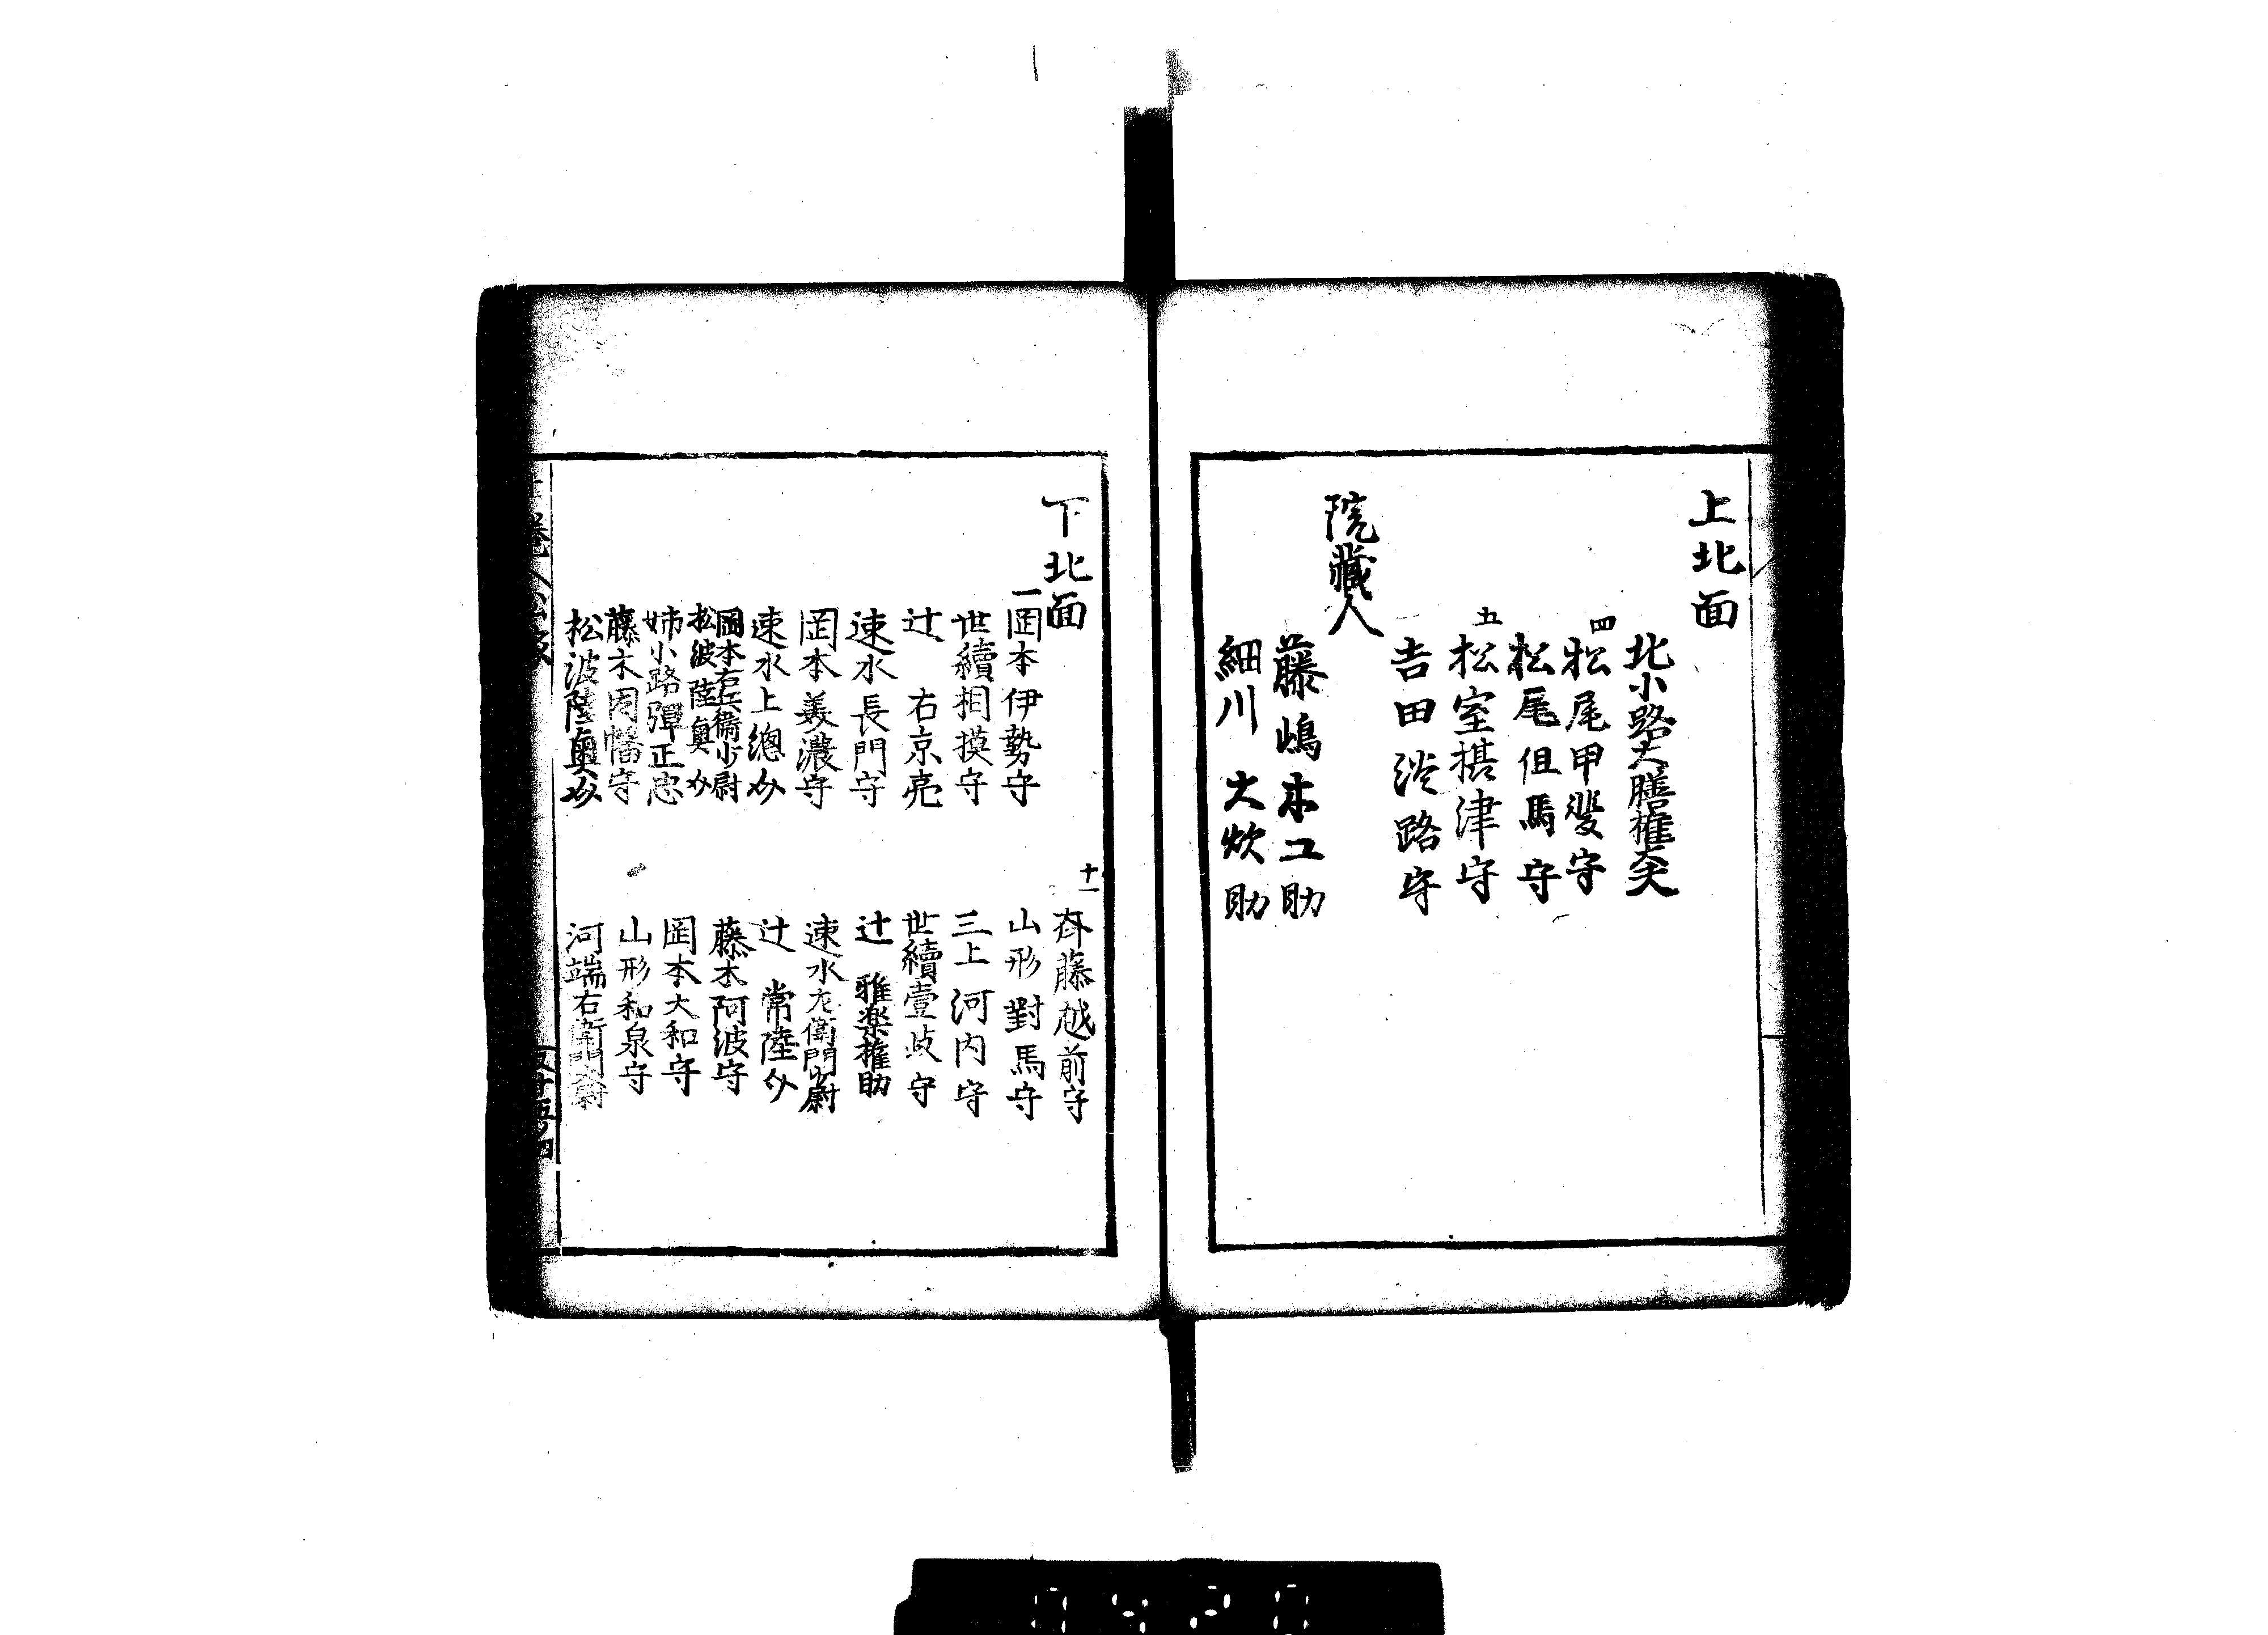 上北面
北小路大膳権大夫
四
松尾甲斐守
松尾但馬守
五
松室摂津守
吉田淡路守
院蔵人
藤嶋木工助
細川大炊助
下北面
一
岡本伊勢守
世續相摸守
辻右京亮
速水長門守
岡本美濃守
速水上總介
岡本右兵衞少尉
松波陸奥介
姉小路彈正忠
藤木因幡守
松波陸奥介
十一
斉藤越前守
山形對馬守
三上河内守
世續壹岐守
辻雅楽權助
速水左衛門少尉
辻常陸介
藤木阿波守
岡本大和守
山形和泉守
河端右衛門大尉